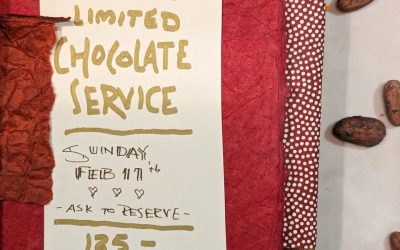 LIMITED
CHOCOLATE
SERVICE
SUNDAY
FEB 17th
- ASK TO RESERVE -
135 -